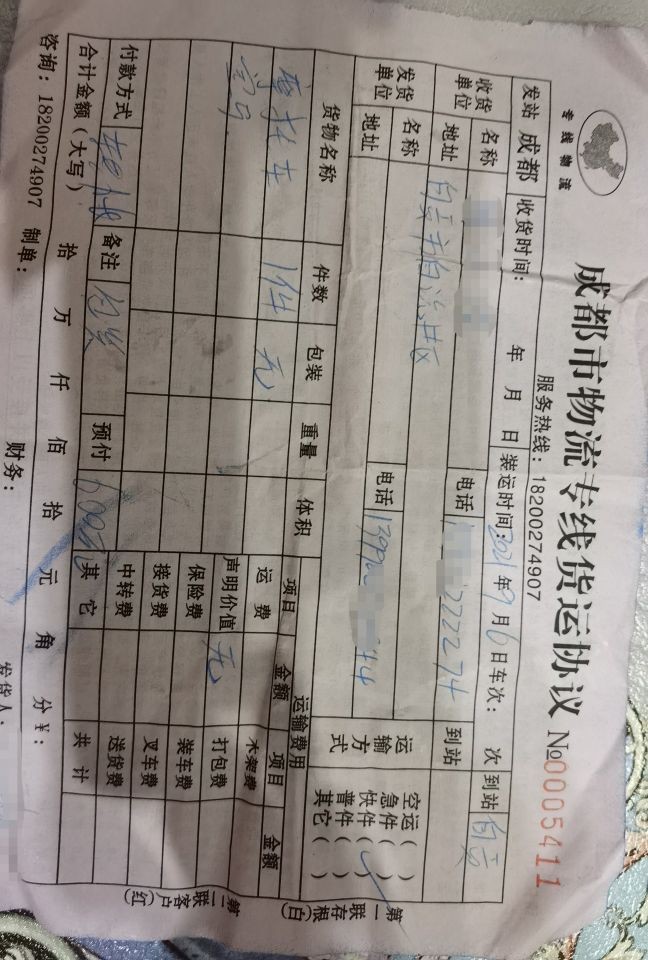 成都市物流专线货运协议 №0005411
专线物流
服务热线：18200274907
发站 成都 收货时间： 年 月 日 装运时间：2021年9月6日 车次： 次 到站
收货单位 名称 电话 222274 到站
地址
发货单位 名称 运输方式 空运( )
急件( )
快件(✓)
普件( )
其它( )
地址 电话
货物名称 件数 包装 重量 体积 运输费用
项目 金额 项目 金额
摩托车 1件 无 运费 木架费
声明价值 无 打包费
保险费 装车费
接货费 叉车费
中转费 送货费
付款方式 备注 预付 其它 共计
合计金额（大写） 拾 万 仟 佰 拾 元 角 分¥：
咨询：18200274907 制单： 财务： 发货人：
第一联存根(白)
第二联客户(红)